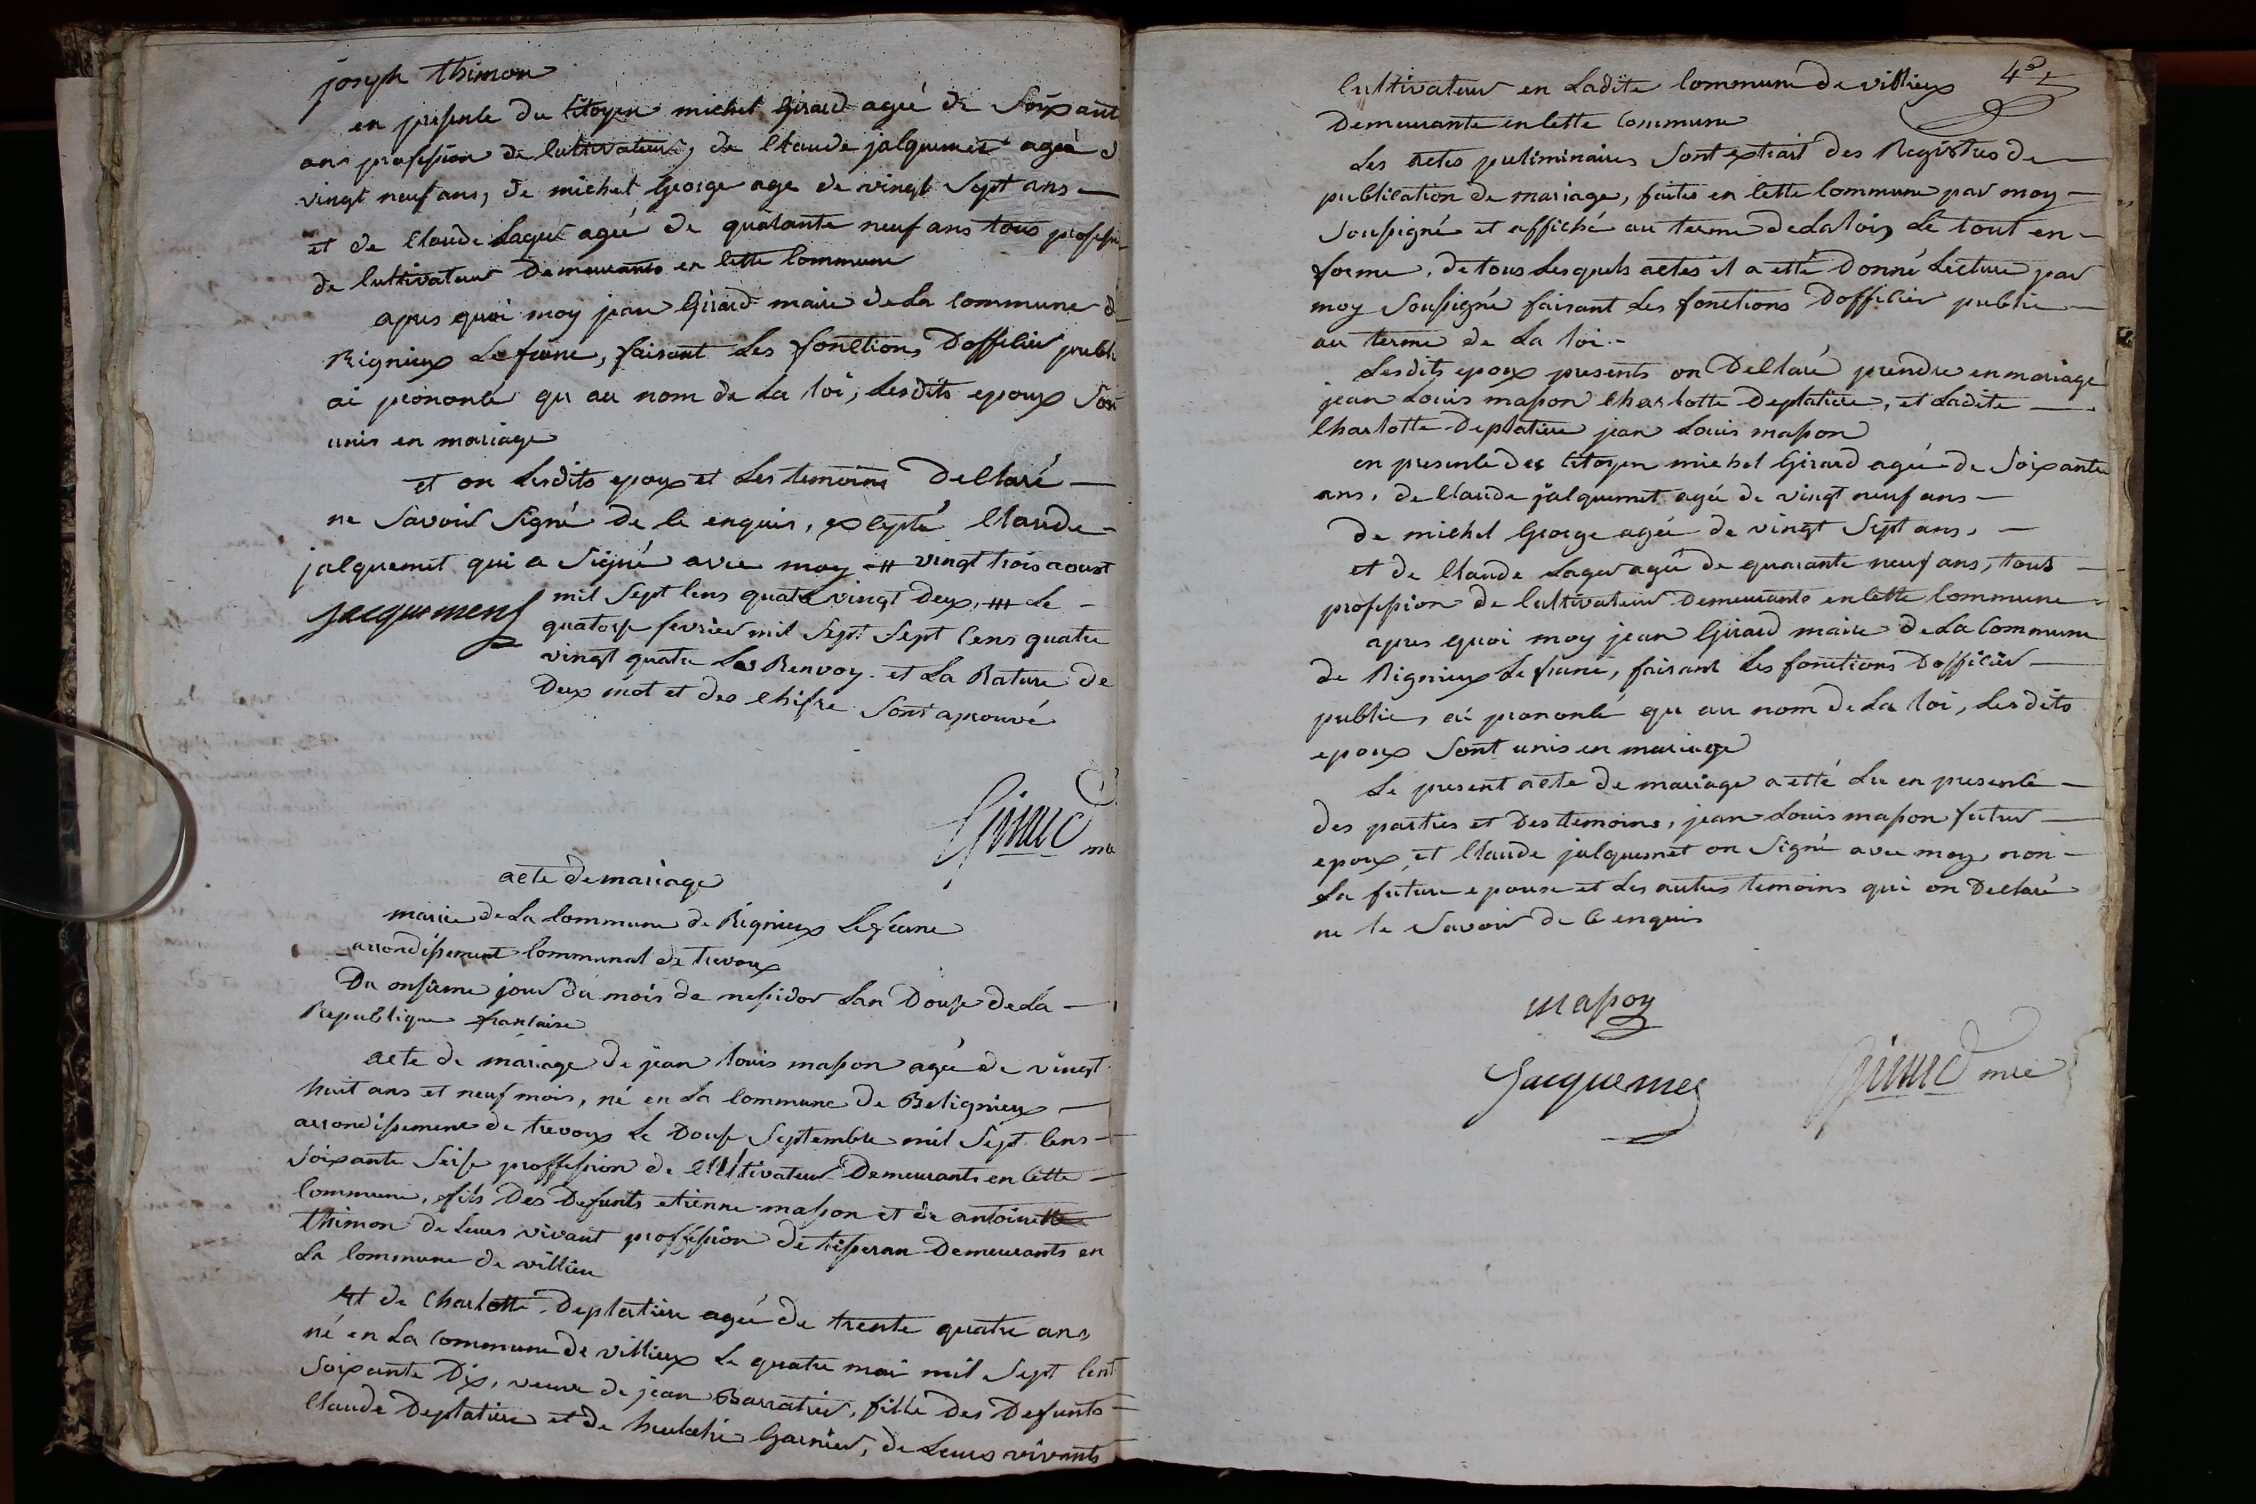 joseph thimon
en presence du Citoyen michel Girard agée de Soixant
ans profession de Cultivateurs, de Claude jalquemet agée d
vingt neuf ans, de michel George age de vingt Sept ans
et de Claude Lager agée de quarante neuf ans tous professi
de Cultivateur Demeurants en Cette Commune
apres quoi moy jean Girard maire de La Commune d
Rignieux Le franc, faisant Les fonctions D'officier publi
ai prononcé qu au nom de La loi, Lesdits epoux Son
unis en mariage
et on Lesdits epoux et Les temoins Declaré
ne Savoir Signé de Ce enquis, excepté Claude
jalquemet qui a Signé avec moy # vingt trois aoust
mil Sept Cens quatre vingt Deux, ## Le
jacquement
quatorse fevrier mil Sept Sept Cens quatre
vingt quatre Les Renvoy et La Rature de
Deux mot et des Chifre Sont aprouvé
Girard ma
acte de mariage
mairie de La Commune de Rignieux Le franc
arrondissement Communal de trevoux
Du onsieme jour du mois de messidor Lan Douse de La
Republique francaise
acte de mariage de jean louis masson agée de vingt
huit ans et neuf mois, né en La Commune de Beligneux
arrondissement de trevoux Le Douse Septembre mil Sept Cens
Soixante Seise proffession de Cultivateur Demeurants en Cette
Commune, fils Des Defunts etienne masson et de antoinette
thimon de Leurs vivant proffession de tisseran Demeurants en
La Commune de villieu
Et de Charlotte Deplatiere agée de trente quatre ans
né en La Commune de villieux Le quatre mai mil Sept Cent
Soixante Dix, veuve de jean Barratier, fille Des Defunts
Claude Deplatiere et de Garnier, de Leurs vivants
45
Cultivateur en Ladite Commune de villieux
Demeurante en Cette Commune
Les actes preliminaires Sont extrait des Registres de
publication de mariage, faites en Cette Commune par moy
Soussigné et affiché au terme de La loi, Le tout en
forme, de tous Lesquels actes il a etté Donné Lecture par
moy Soussigné faisant Les fonctions D'officier public
au terme de La loi.
Lesdits epoux presents on Declaré prendre en mariage
jean Louis masson Charlotte Deplatiere, et Ladite
Charlotte Deplatiere jean Louis masson
en presence des Citoyen michel Girard agée de Soixante
ans, de Claude jalquemet agée de vingt neuf ans
de michel George agée de vingt Sept ans,
et de Claude Lager agée de quarante neuf ans, tous
profession de Cultivateur Demeurants en Cette Commune
apres quoi moy jean Girard maire de La Commune
de Rignieux Le franc, faisant Les fonctions D'officier
public, ai prononcé qu au nom de La loi, Lesdits
epoux Sont unis en mariage
Le present acte de mariage a etté Lu en presence
des parties et Des temoins, jean Louis masson futur
epoux et Claude jalquemet on Signé avec moy, non
La future epouse et Les autres temoins qui on Declaré
ne le Savoir de Ce enquis
masson
Jacquemet
Girard mre